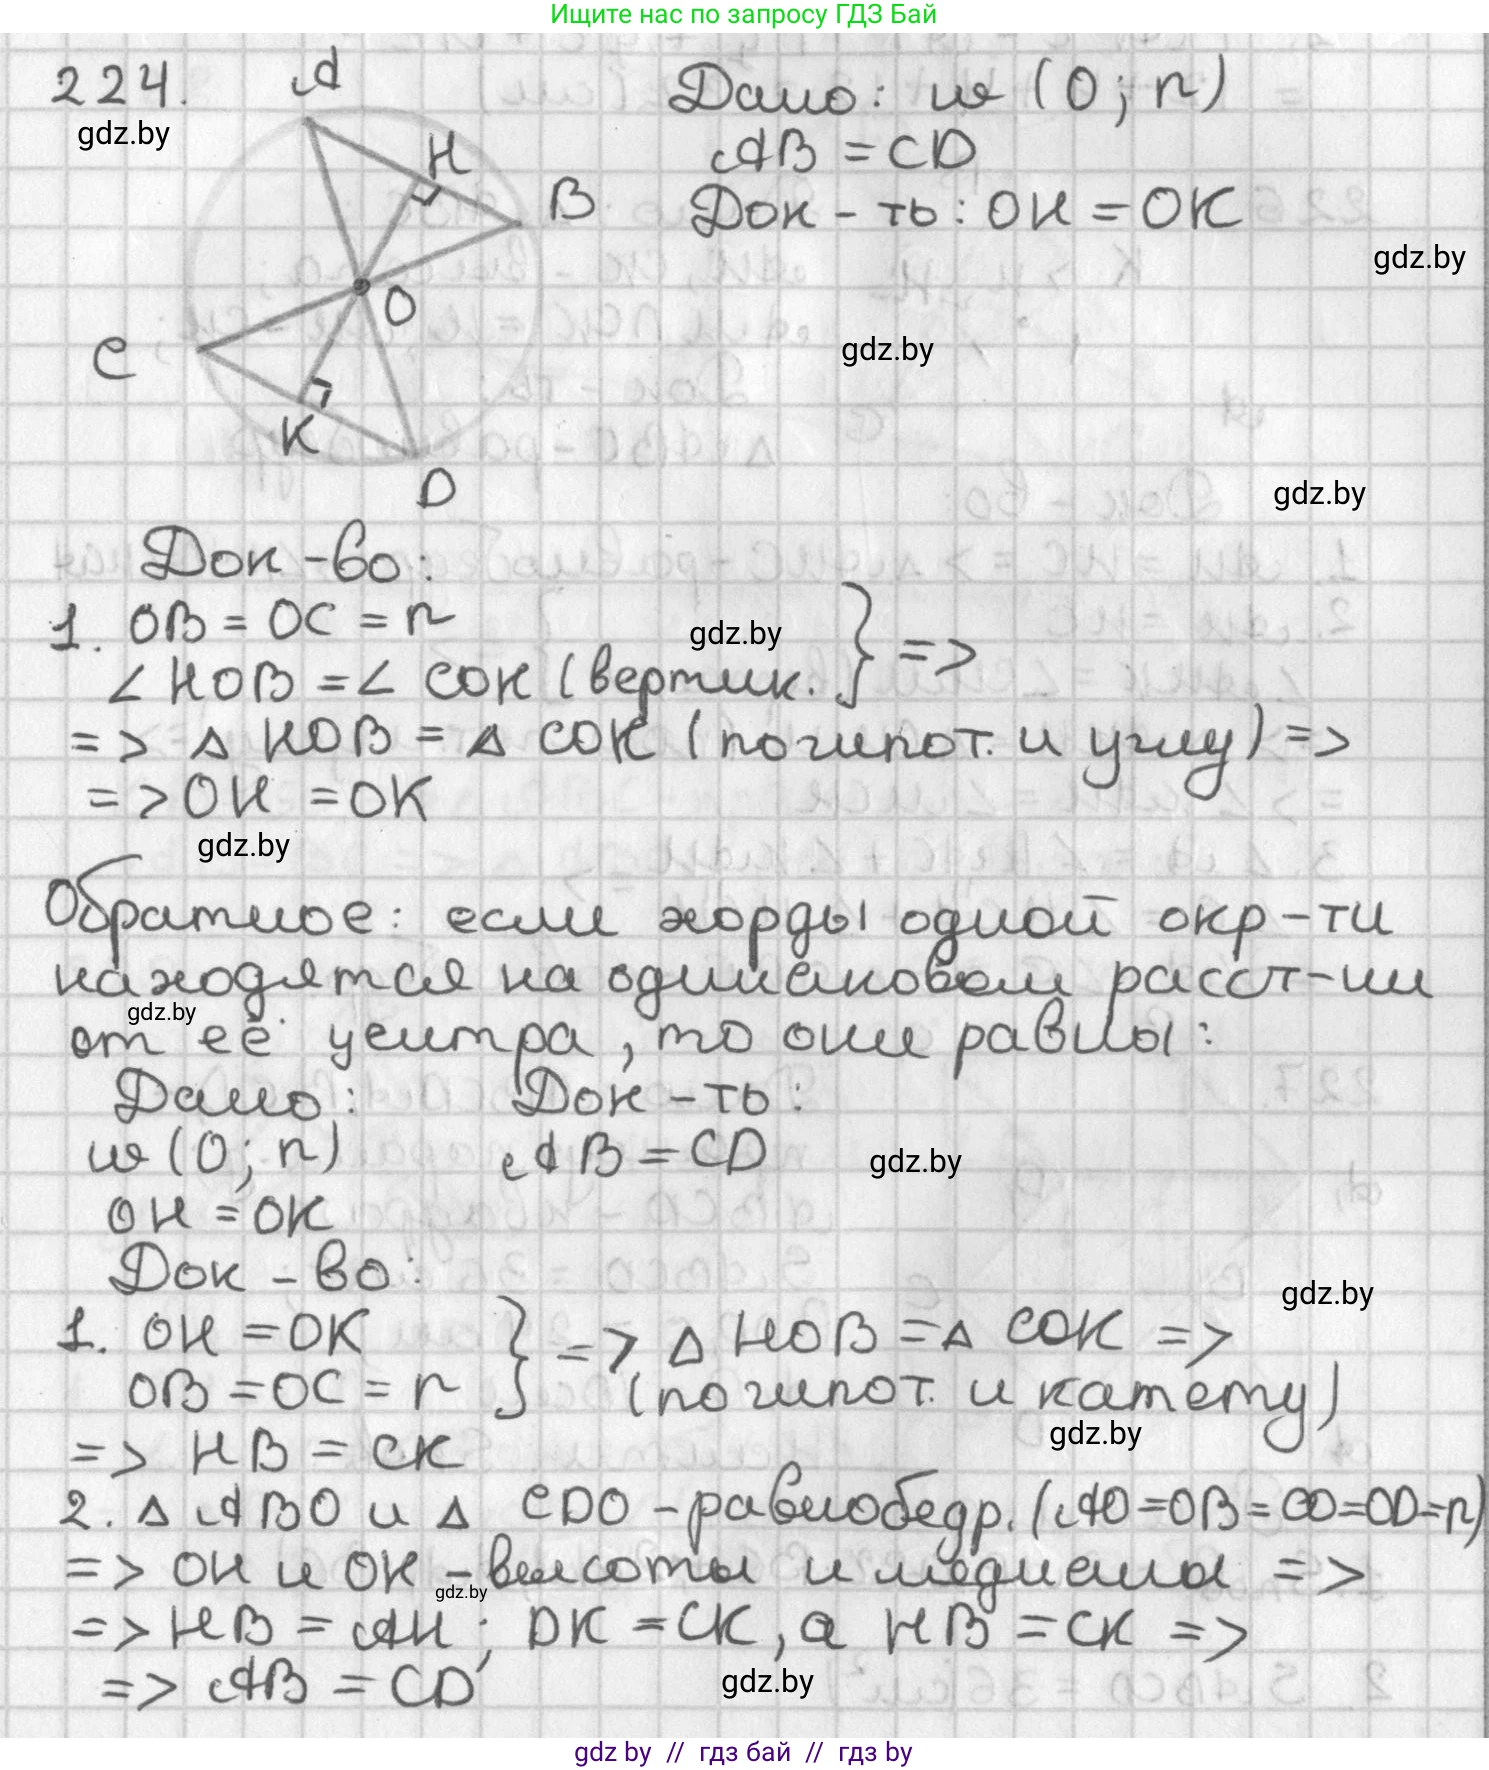 Ищите нас по запросу ГДЗ Бай
224.
A
Дано: w (O; r)
gdz.by
H
AB = CD
B
Док - ть: OH = OK
gdz.by
O
C
gdz.by
K
D
gdz.by
Док - во:
1. OB = OC = r
gdz.by
∠ HOB = ∠ COK (вертик. } =>
=> △ HOB = △ COK (по гипот. и углу) =>
=> OH = OK
gdz.by
Обратное: если хорды одной окр - ти
находятся на одинаковом расст - нии
gdz.by
от её центра, то они равны:
Дано: Док - ть:
w (O; r) AB = CD
gdz.by
OH = OK
Док - во:
gdz.by
1. OH = OK } => △ HOB = △ COK =>
OB = OC = r (по гипот. и катету)
gdz.by
=> HB = CK
2. △ ABO и △ CDO - равнобедр. (AO = OB = CO = OD = r)
=> OH и OK - высоты и медианы =>
gdz.by
=> HB = AH; DK = CK, а HB = CK =>
=> AB = CD
gdz.by
gdz by // гдз бай // гдз by